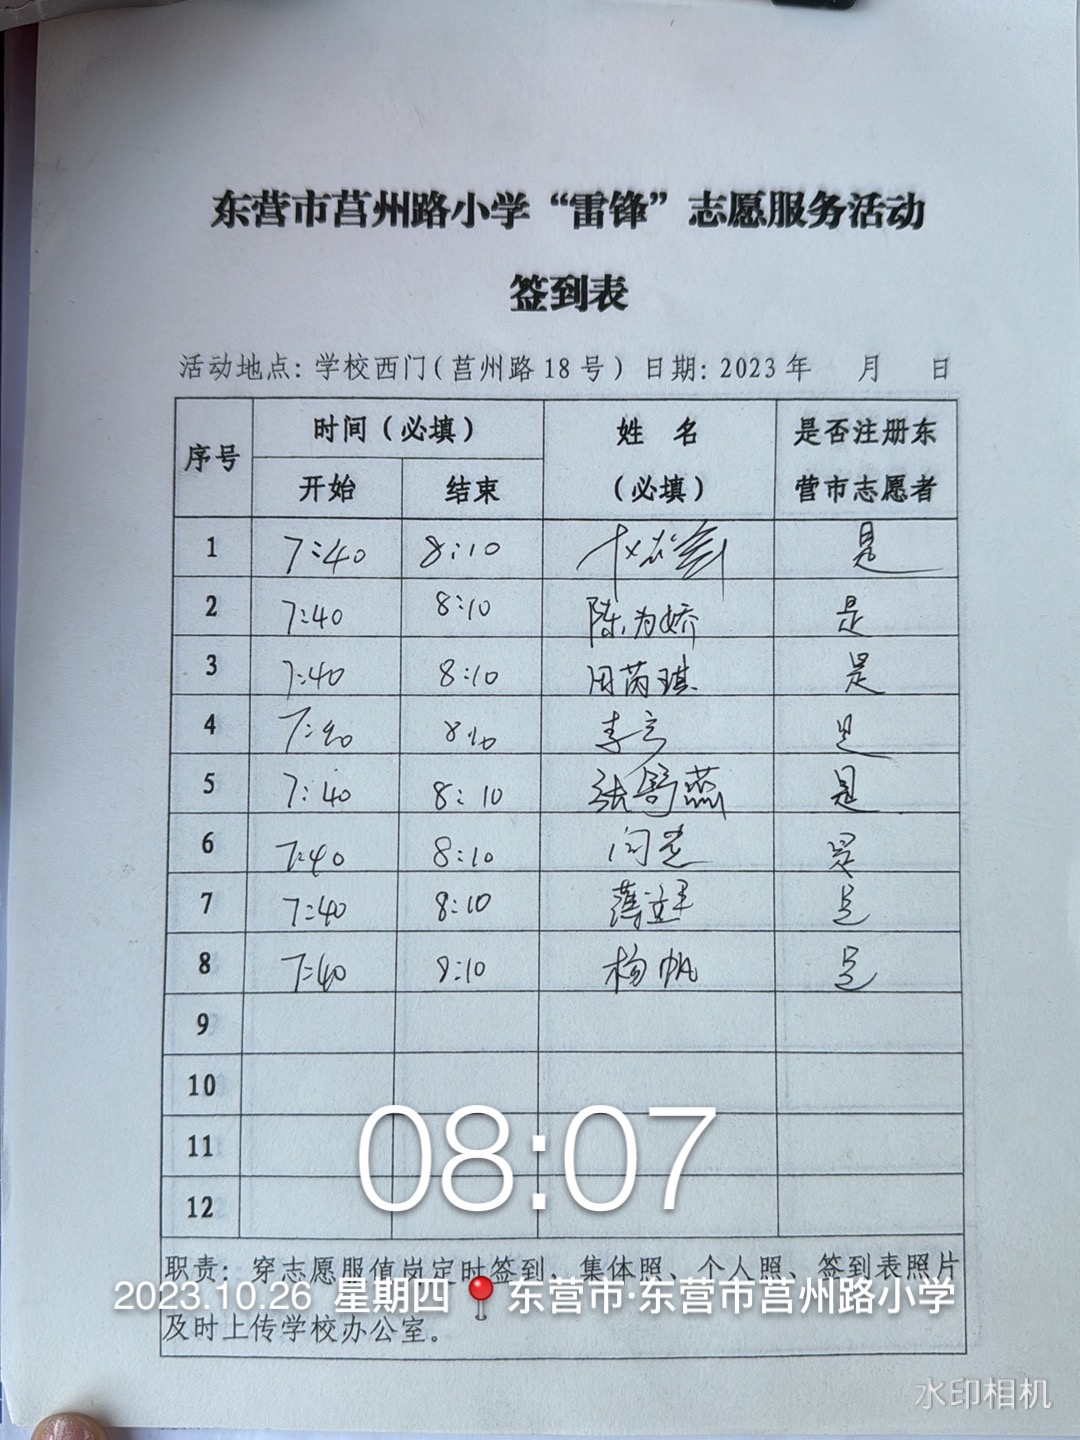 东营市莒州路小学“雷锋”志愿服务活动
签到表
活动地点：学校西门（莒州路18号）日期：2023年 月 日
序号 时间（必填） 姓 名 是否注册东
开始 结束 （必填） 营市志愿者
1 7:40 8:10 是
2 7:40 8:10 陈为娇 是
3 7:40 8:10 田芮琪 是
4 7:40 8:10 李 是
5 7:40 8:10 张雪燕 是
6 7:40 8:10 闫 是
7 7:40 8:10 薄 是
8 7:40 8:10 杨帆 是
9
10
11
12
08:07
职责：穿志愿服值岗定时签到，集体照、个人照、签到表照片
2023.10.26 星期四 东营市·东营市莒州路小学
及时上传学校办公室。
水印相机